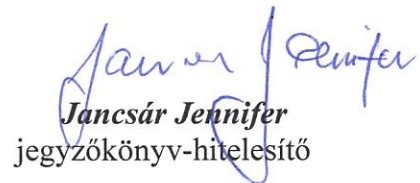 Jancsár Jennifer
Jancsár Jennifer
jegyzőkönyv-hitelesítő